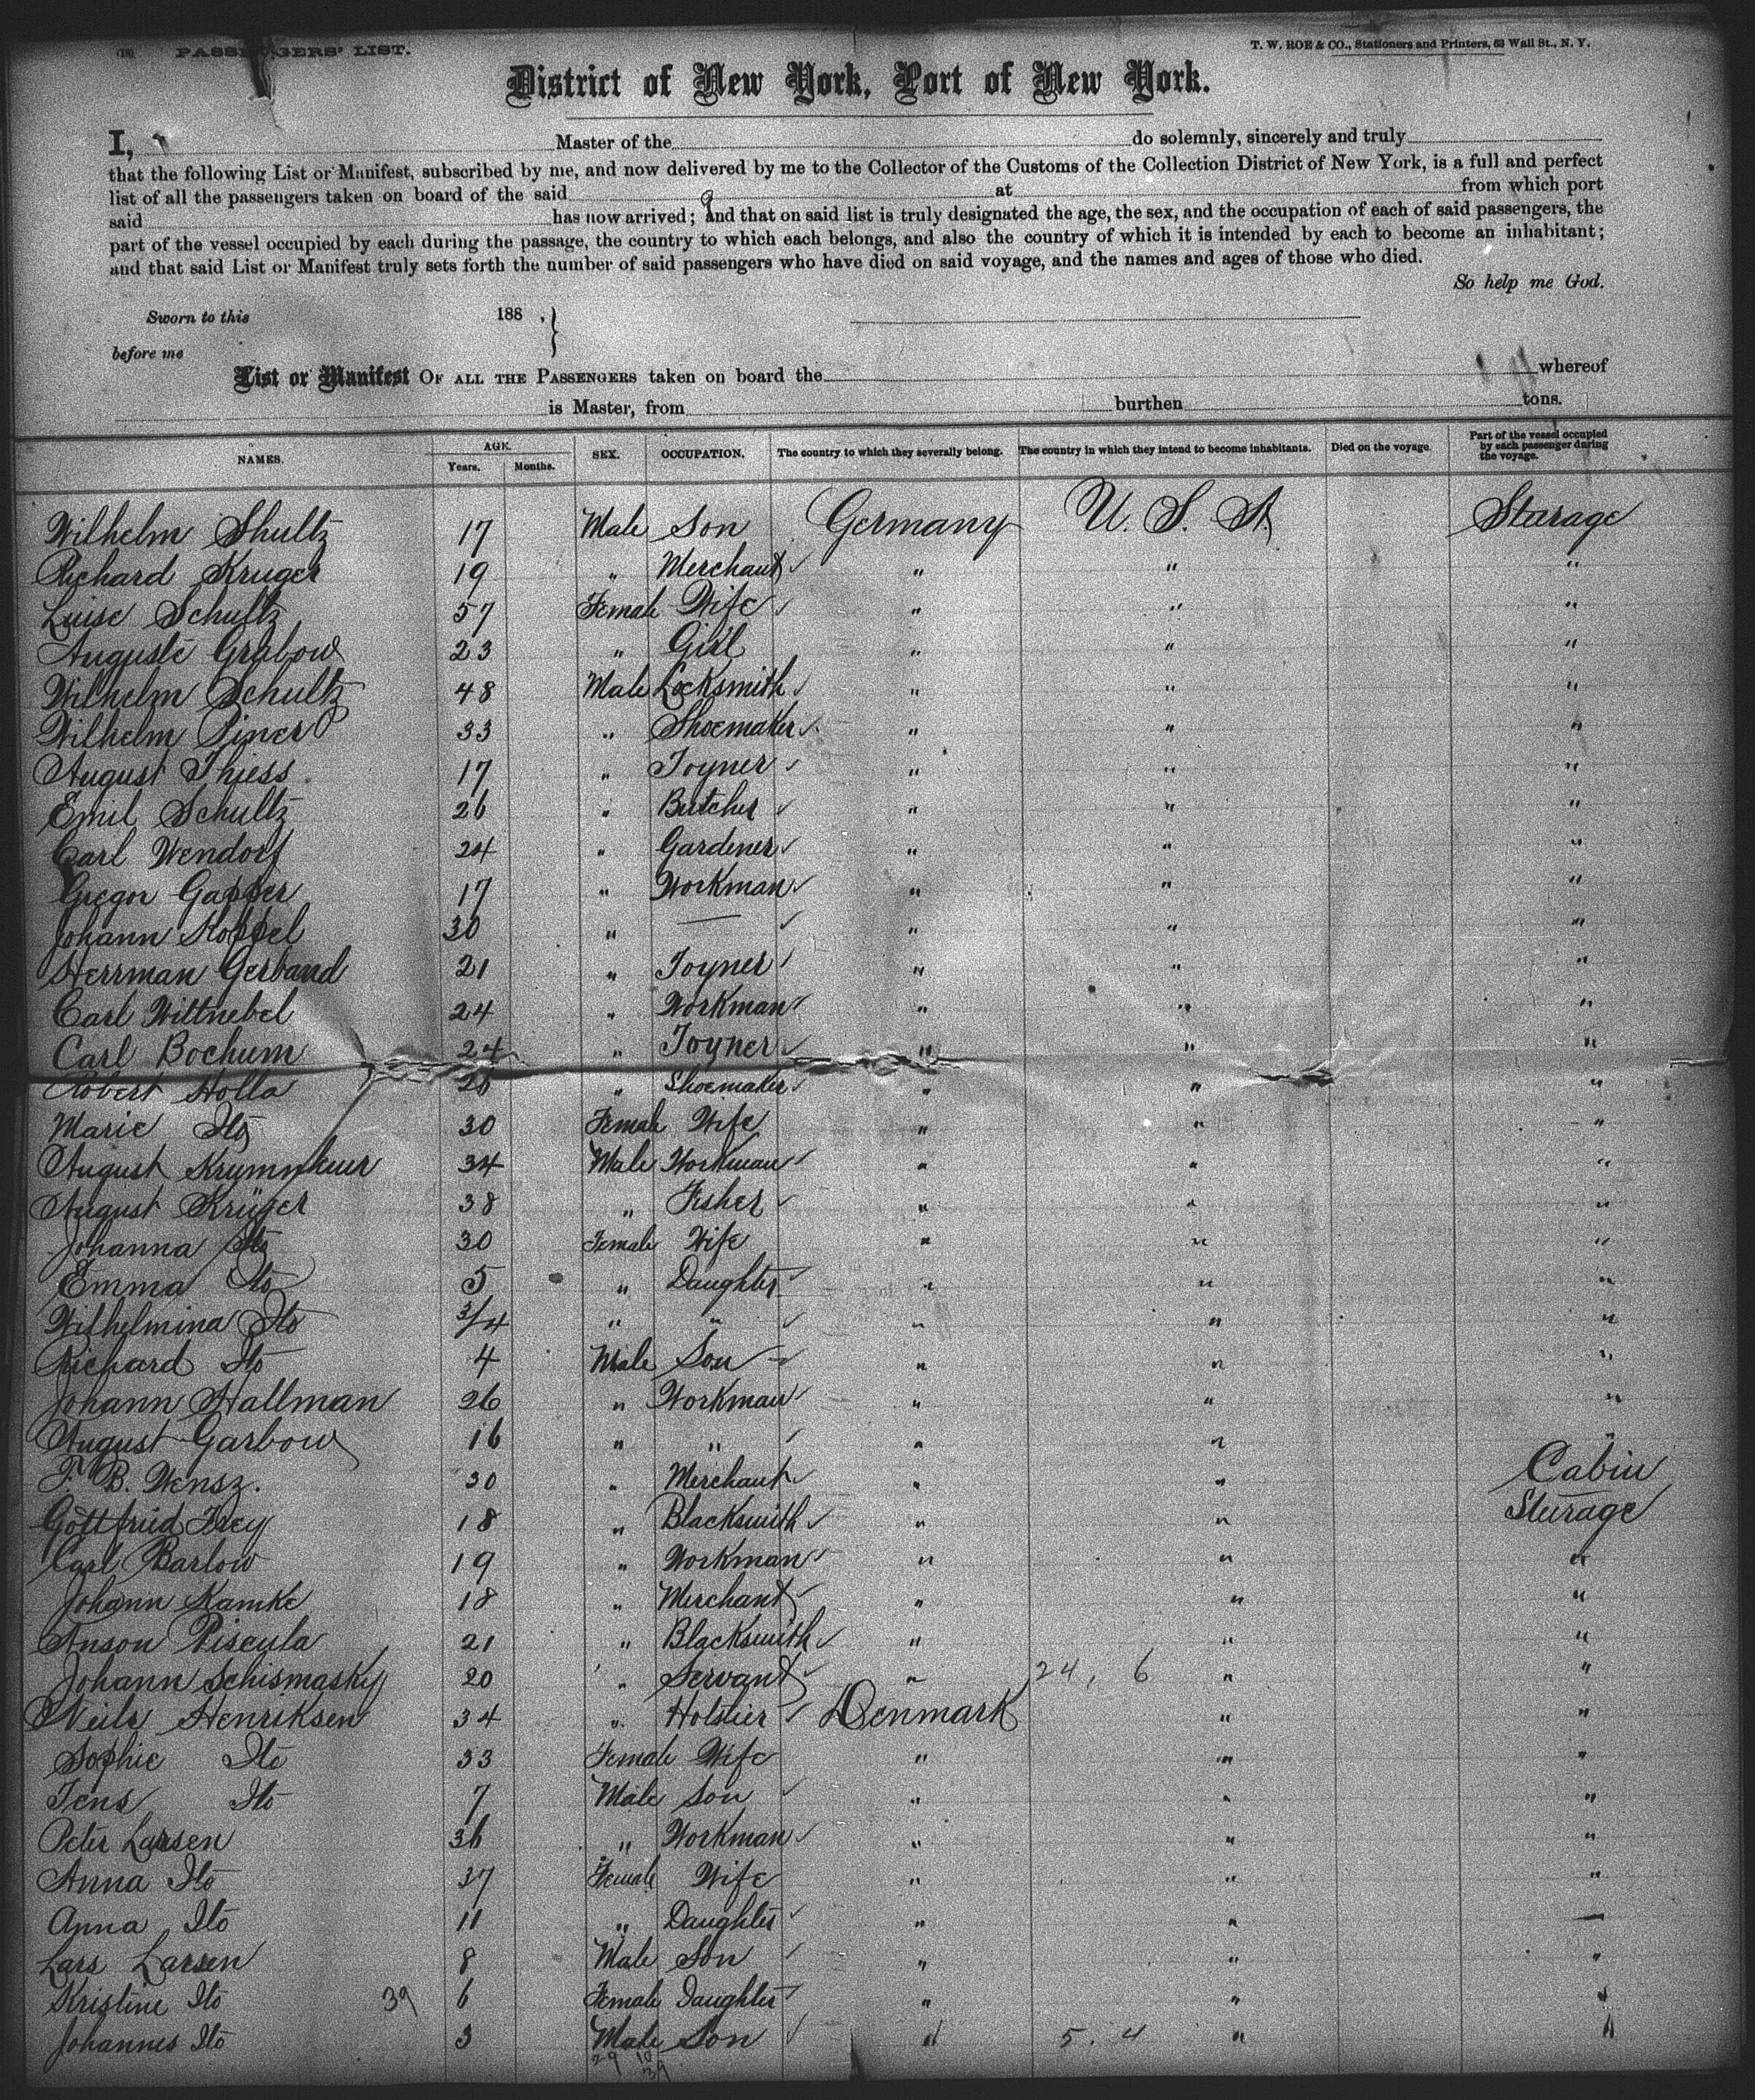 (18) PASSENGERS' LIST.
T. W. ROE & CO., Stationers and Printers, 63 Wall St., N. Y.
District of New York, Port of New York.
I, Master of the do solemnly, sincerely and truly
that the following List or Manifest, subscribed by me, and now delivered by me to the Collector of the Customs of the Collection District of New York, is a full and perfect
list of all the passengers taken on board of the said at from which port
said has now arrived; and that on said list is truly designated the age, the sex, and the occupation of each of said passengers, the
part of the vessel occupied by each during the passage, the country to which each belongs, and also the country of which it is intended by each to become an inhabitant;
and that said List or Manifest truly sets forth the number of said passengers who have died on said voyage, and the names and ages of those who died.
So help me God.
Sworn to this 188 ,
before me
List or Manifest OF ALL THE PASSENGERS taken on board the whereof
is Master, from burthen tons.
NAMES. AGE. Years. Months. SEX. OCCUPATION. The country to which they severally belong. The country in which they intend to become inhabitants. Died on the voyage. Part of the vessel occupied by each passenger during the voyage.
Wilhelm Shultz 17 Male Son Germany U. S. A Sturage
Richard Kruger 19 " Merchant " " "
Luise Schultz 57 Female Wife " " "
Auguste Grabow 23 " Girl " " "
Wilhelm Schultz 48 Male Locksmith " " "
Wilhelm Piner 33 " Shoemaker " " "
August Thiess 17 " Joyner " " "
Emil Schultz 26 " Butcher " " "
Carl Wendorf 24 " Gardener " " "
Gregor Gapper 17 " Workman " " "
Johann Koppel 30 " — " " "
Herrman Gerband 21 " Joyner " " "
Carl Wittnebel 24 " Workman " " "
Carl Bochum 24 " Joyner " " "
Robert Holla 26 " Shoemaker " " "
Marie Dto 30 Female Wife " " "
August 34 Male Workman " " "
August Krüger 38 " Fisher " " "
Johanna Dto 30 Female Wife " " "
Emma Dto 5 " Daughter " " "
Wilhelmina Dto 3/4 " " " " "
Richard Dto 4 Male Son " " "
Johann Hallman 26 " Workman " " "
August Garbow 16 " " " " "
F. B. Wensz. 30 " Merchant " " Cabin
Gottfried Frey 18 " Blacksmith " " Sturage
Carl Barlow 19 " Workman " " "
Johann Kamke 18 " Merchant " " "
Anson Piscula 21 " Blacksmith " " "
Johann Schismasky 20 " Servant " 24, 6 " "
Neils Henriksen 34 " Holstier Denmark " "
Sophie Dto 33 Female Wife " " "
Jens Dto 7 Male Son " " "
Peter Larsen 36 " Workman " " "
Anna Dto 37 Female Wife " " "
Anna Dto 11 " Daughter " " —
Lars Larsen 8 Male Son " " "
Kristine Dto 39 6 Female Daughter " " "
Johannes Dto 3 Male Son " 5. 4 " "
29 10
39